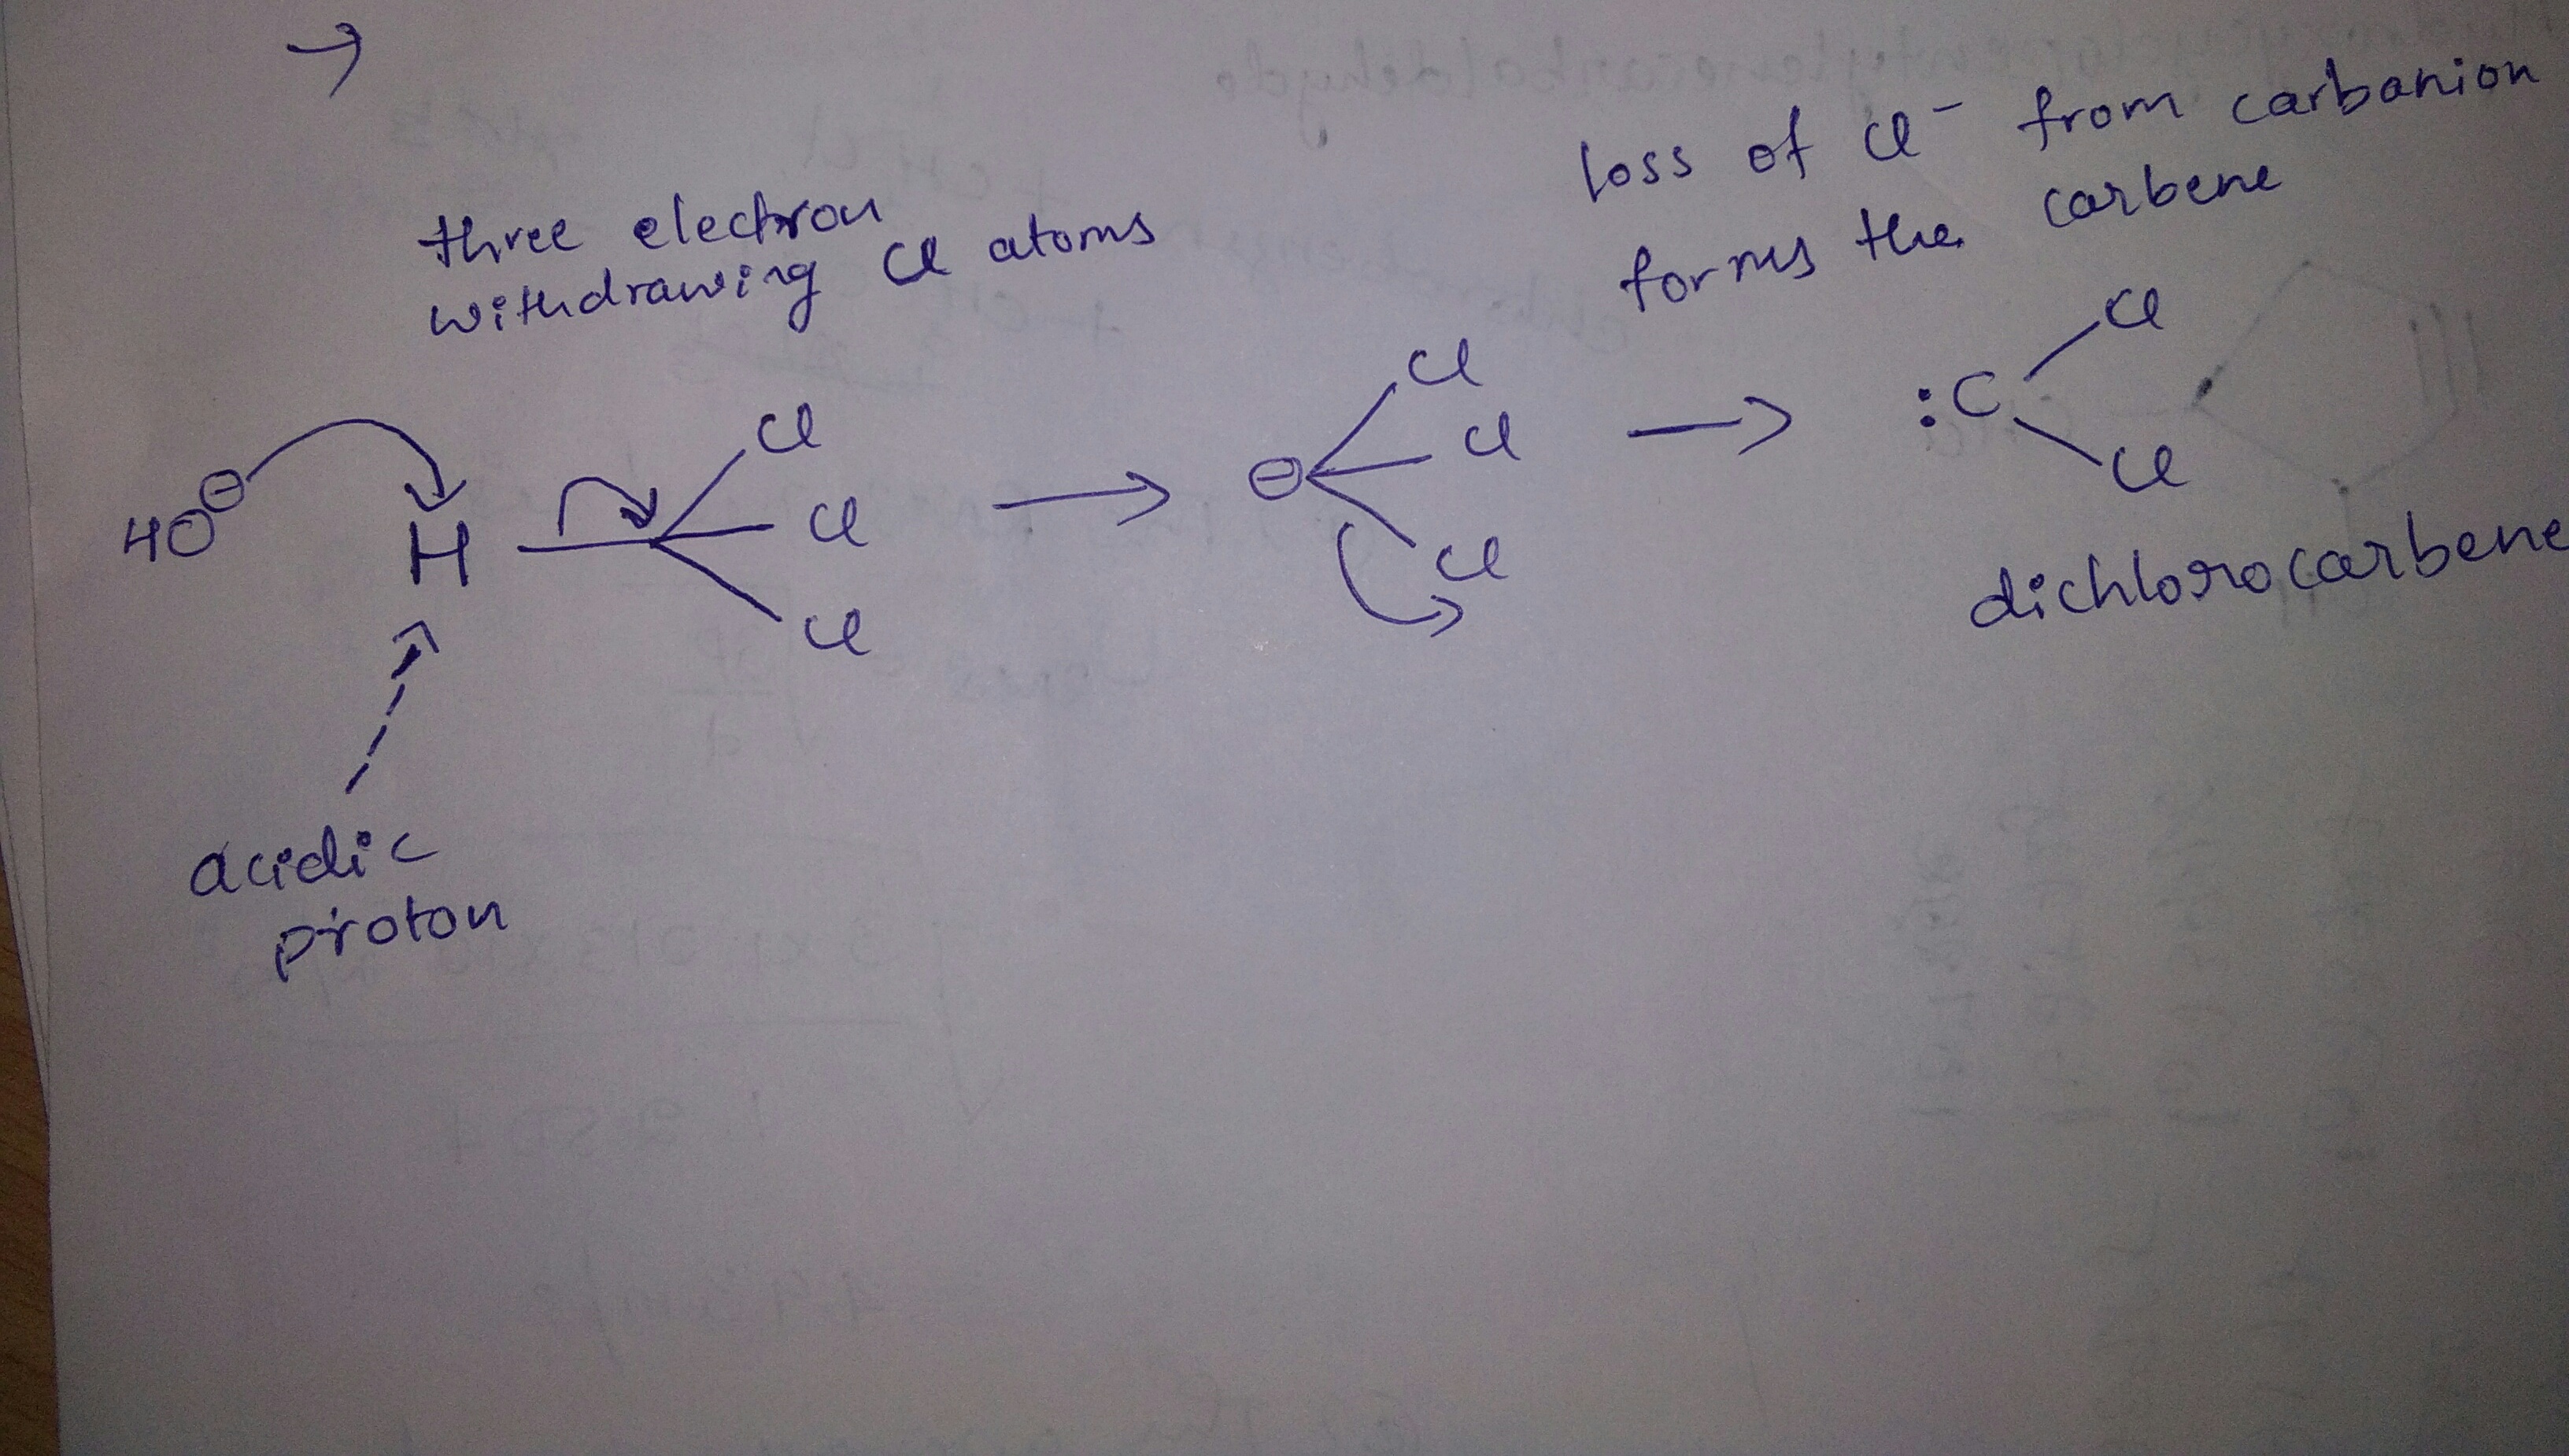 →
three electron
withdrawing Cl atoms
loss of Cl⁻ from carbanion
forms the carbene
HO⊖ H Cl Cl Cl → ⊖ Cl Cl Cl → :C Cl Cl
dichlorocarbene
acidic
proton